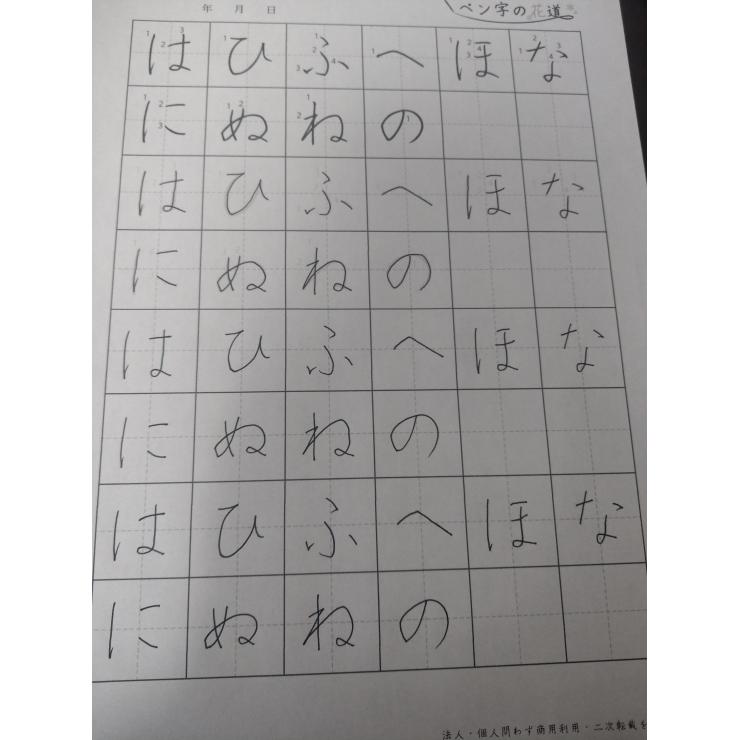 年 月 日
ペン字の花道
はひふへほな
にぬねの
はひふへほな
にぬねの
はひふへほな
にぬねの
はひふへほな
にぬねの
法人・個人問わず商用利用・二次転載を